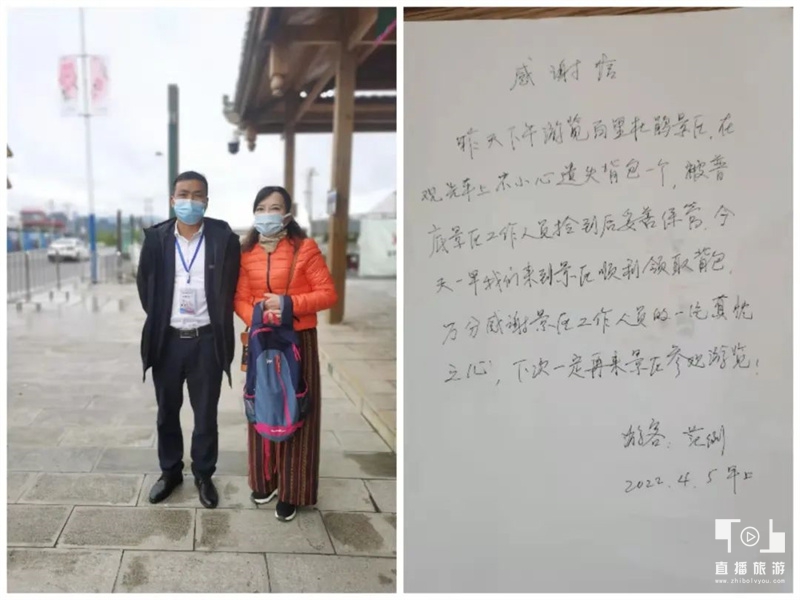 感谢信
昨天下午游览百里杜鹃景区,在
观光车上不小心遗失背包一个,被普
底景区工作人员捡到后妥善保管,今
天一早我们来到景区顺利领取背包,
万分感谢景区工作人员的一片真忱
之心,下次一定再来景区参观游览!
游客:范
2022.4.5
直播旅游
www.zhibolvyou.com